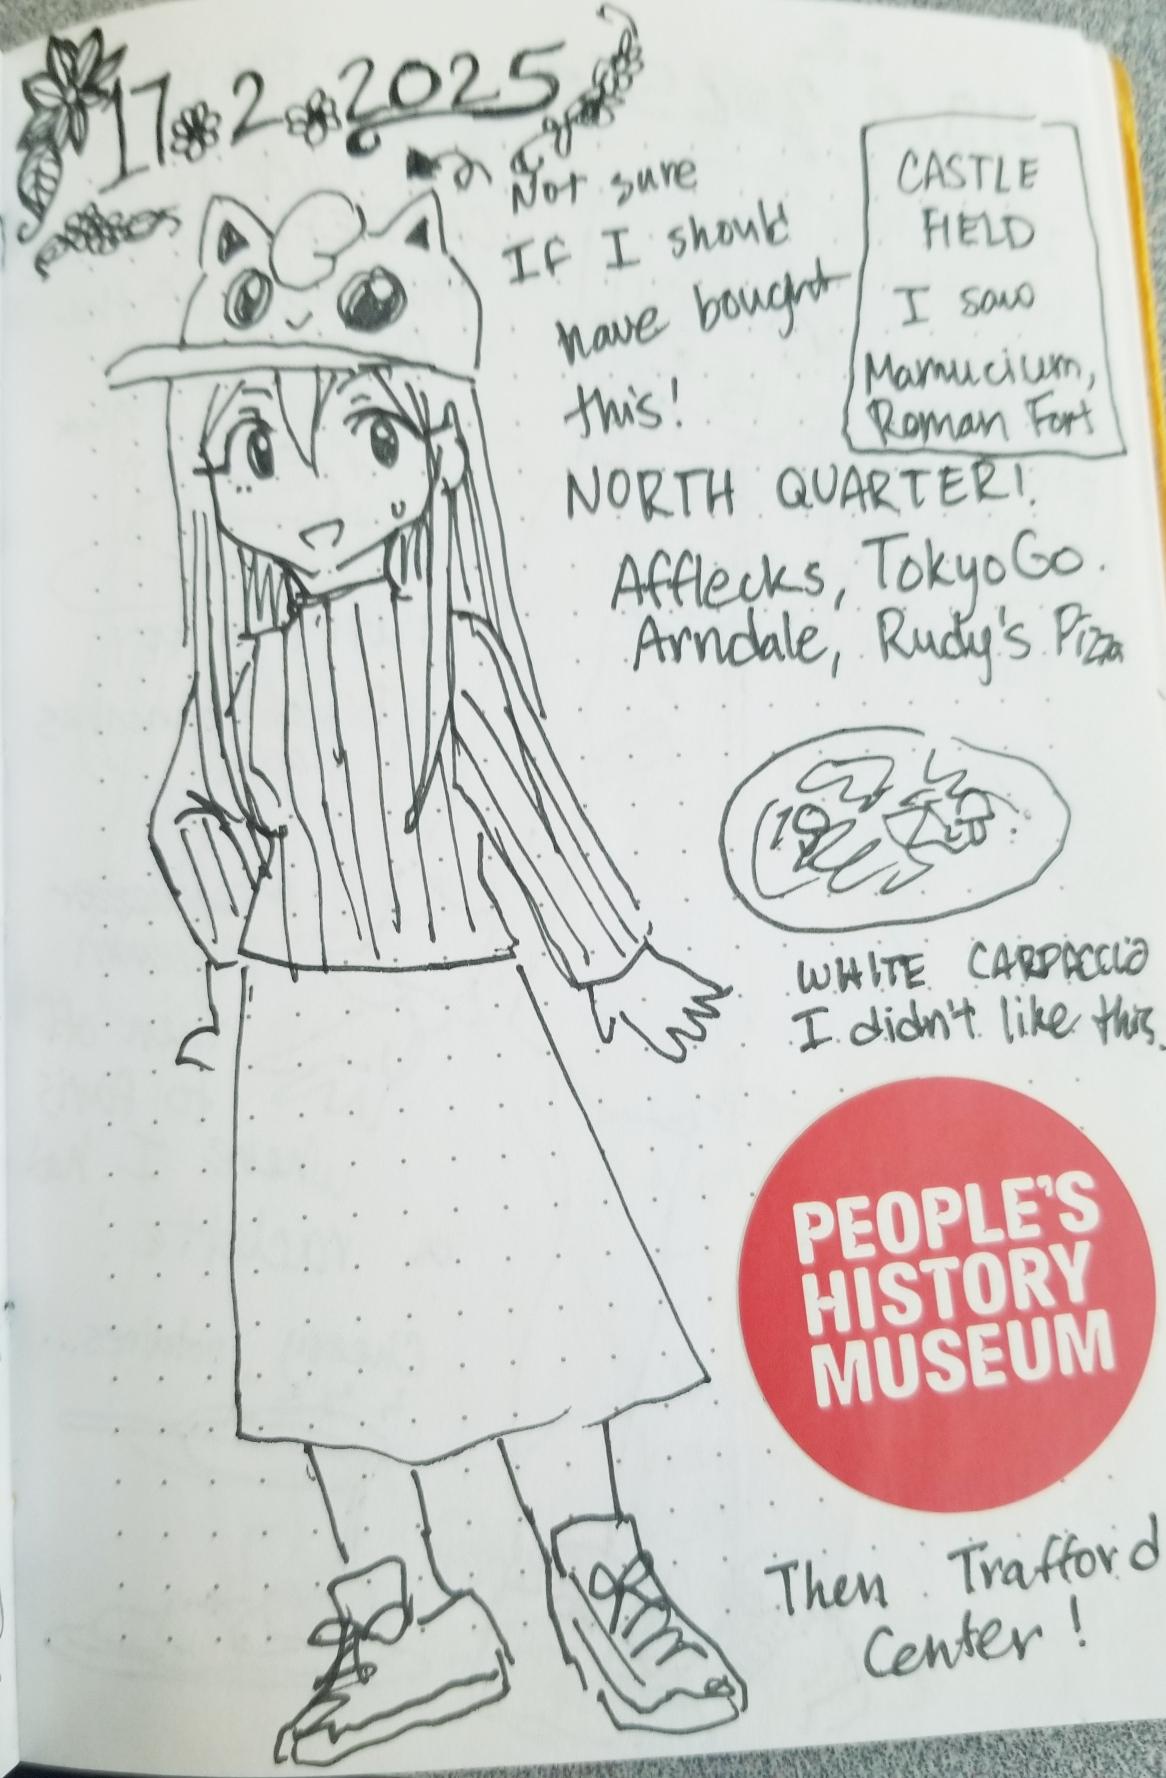 17.2.2025
Not sure
If I should
have bought
this!
CASTLE
FIELD
I saw
Mamucium,
Roman Fort
NORTH QUARTER!
Afflecks, TokyoGo.
Arndale, Rudy's Pizza
WHITE CARPACCIO
I didn't like this.
PEOPLE'S
HISTORY
MUSEUM
Then Trafford
Center!